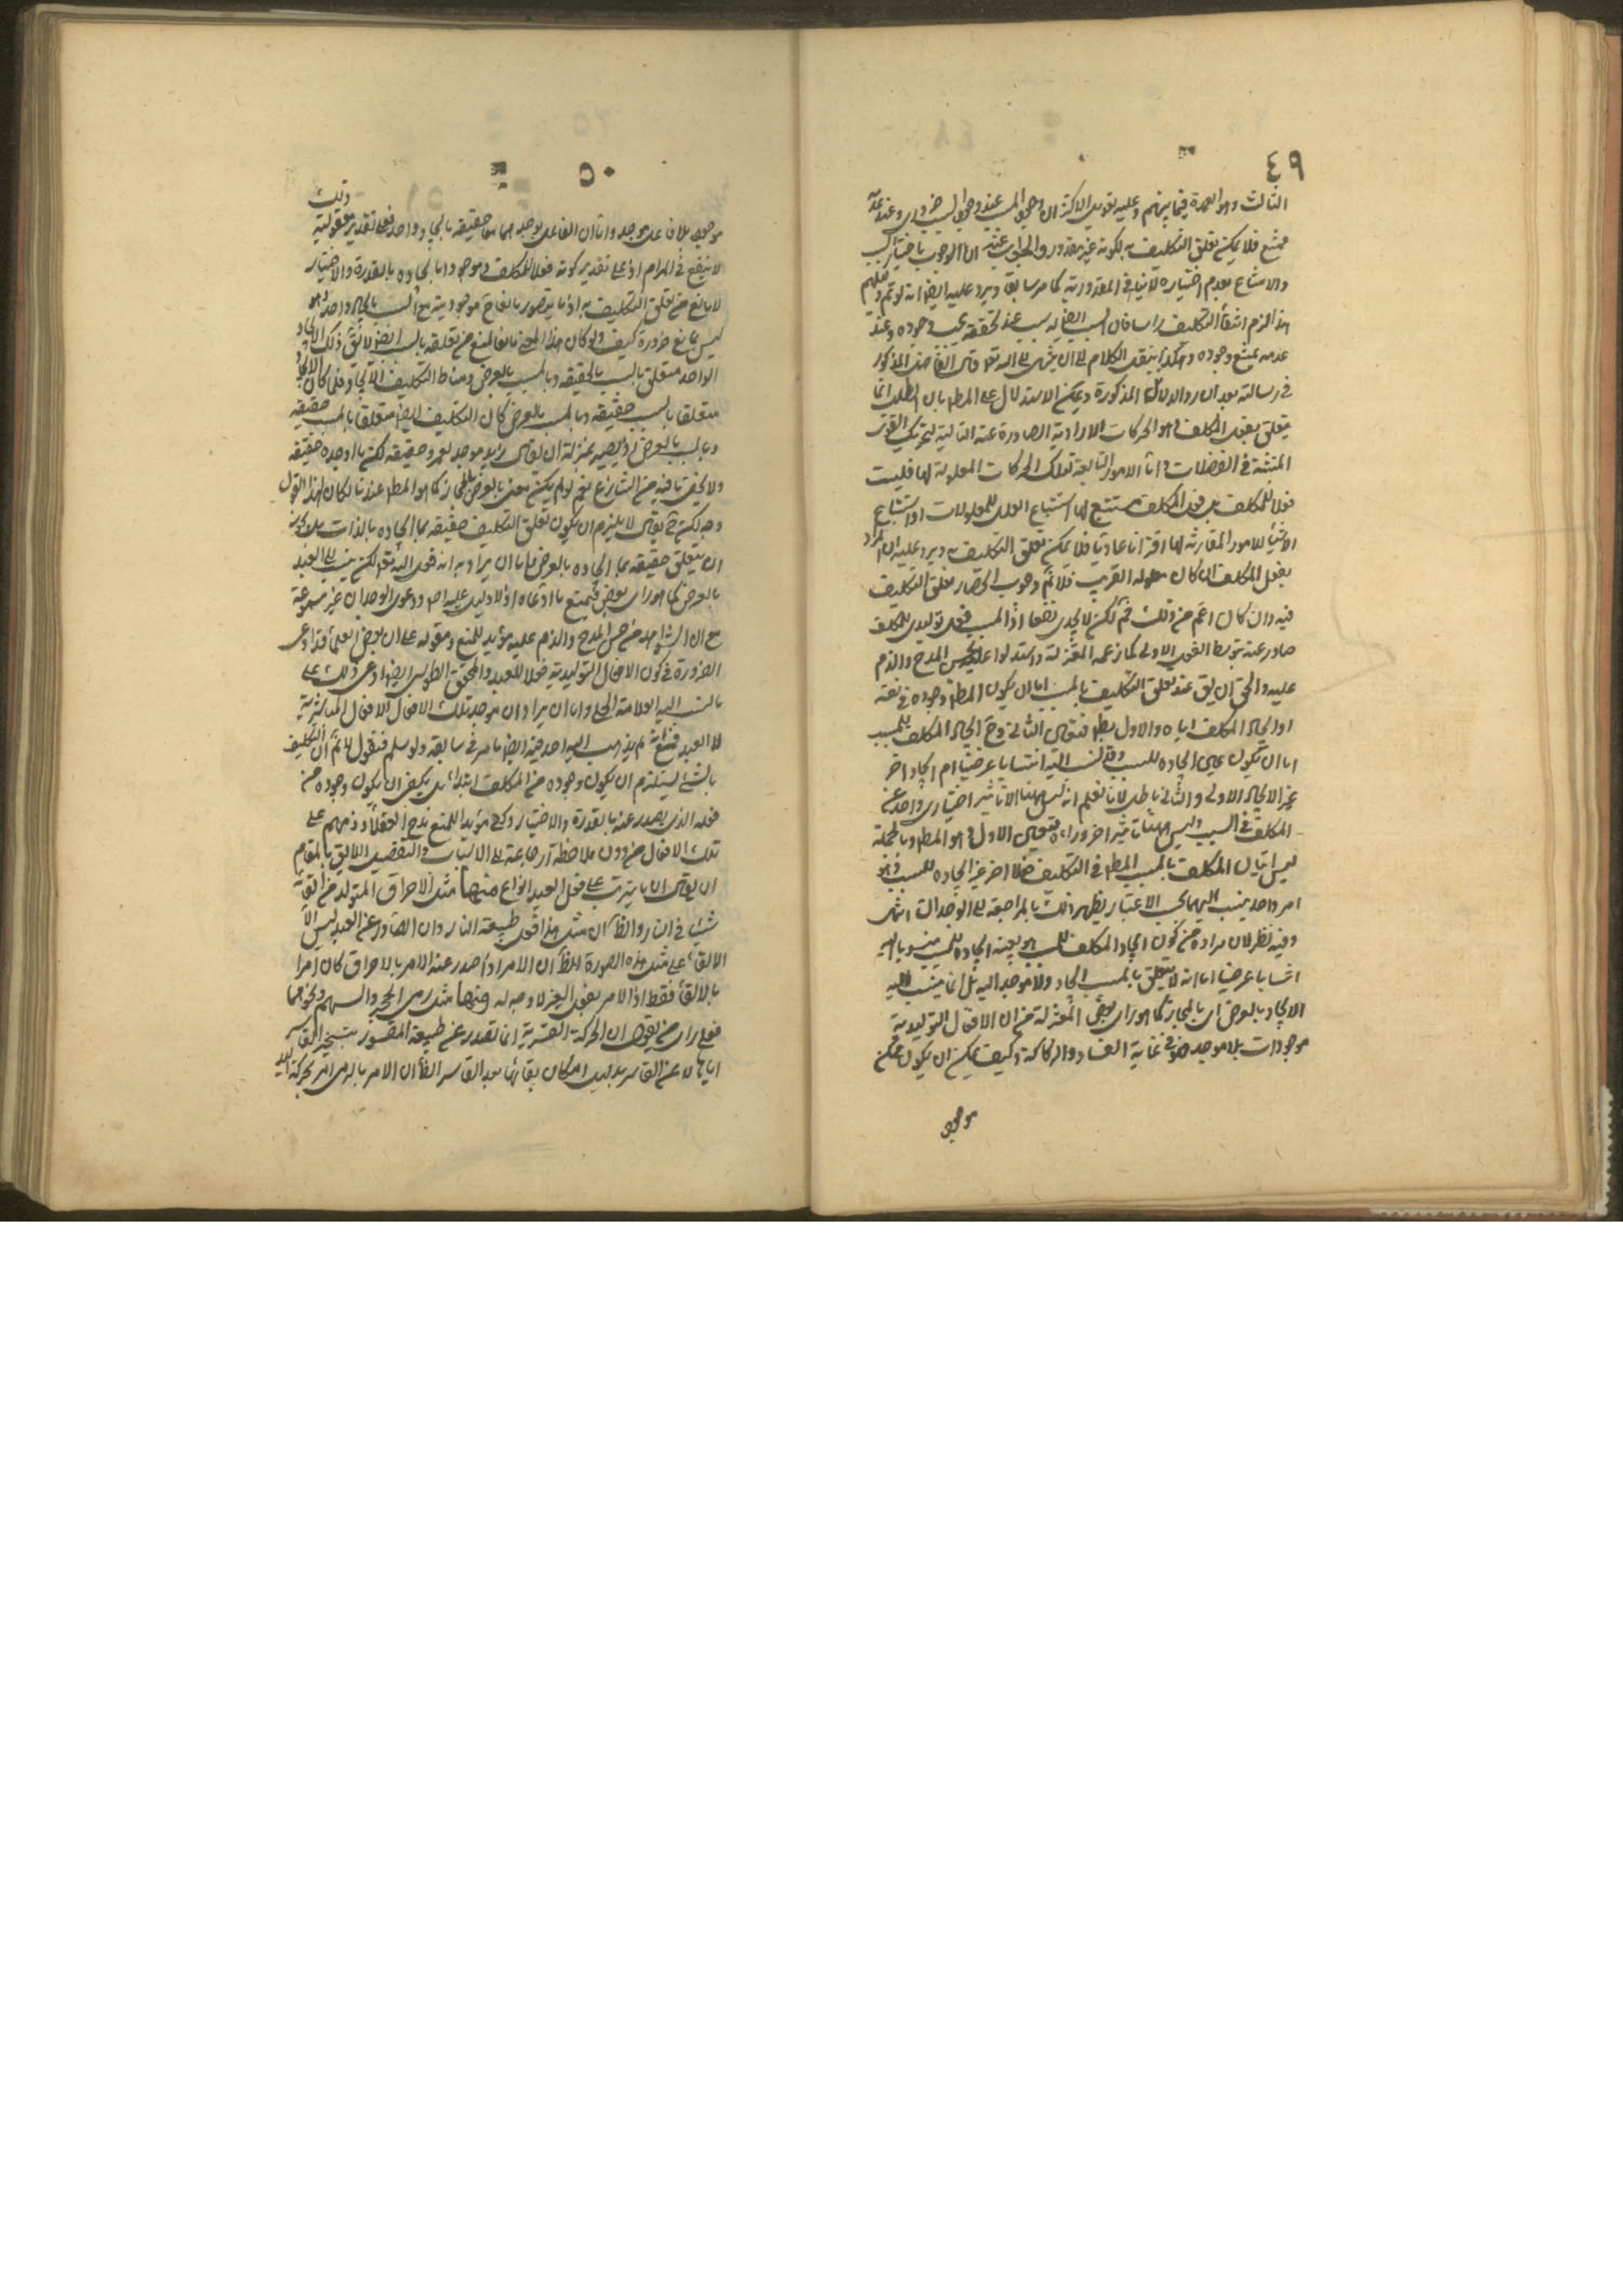 ٤٩
الثالث وهو العمدة فيما بينهم وعليه تعويل الاكثر ان وجود المسبب عند وجود السبب ضروري وعند عدمه
ممتنع فلا يمكن تعلق التكليف به لكونه غير مقدور والجواب عنه ان الوجوب باختيار السبب
والامتناع بعدم اختياره لا ينافي المقدورية كما مر سابقا ويرد عليه ايضا انه لو تم دليلهم
هذا لزم انتفاء التكليف راسا فان السبب ايضا له سبب عند تحققه يجب وجوده وعند
عدمه يمتنع وجوده وهكذا ينقل الكلام الى ان ينتهي الى الله تعالى وقال الفاضل المذكور
في رسالته بعد ايراد الدلائل المذكورة ويمكن الاستدلال على المط بان الطلب انما
يتعلق بفعل المكلف وهو الحركات الارادية الصادرة عنه التالية لتحريك القوى
المنبثة في العضلات واما الامور التابعة لتلك الحركات المعلولة لها فليست
فعلا للمكلف بل فعل المكلف مستتبع لها استتباع العلل للمعلولات او استتباع
الاشياء للامور المقارنة لها اقترانا عاديا فلا يمكن تعلق التكليف به ويرد عليه ان المراد
بفعل المكلف ان كان معلوله القريب فلا نم وجوب انحصار متعلق التكليف
فيه وان كان اعم من ذلك فم لكن لا يجدي نفعا اذ المسبب فعل توليدي للمكلف
صادر عنه بتوسط الفعل الاول كما زعمه المعتزلة واستدلوا عليه بحسن المدح والذم
عليه والحق ان يق عند تعلق التكليف بالمسبب اما ان يكون المط وجوده في نفسه
او ايجاد المكلف اياه والاول بط فتعين الثاني وح ايجاد المكلف للمسبب
اما ان يكون عين ايجاده للسبب وقد نسب اليه انتسابا عرضيا ام ايجاد اخر
غير الايجاد الاول والثاني باطل لانا نعلم انه ليس ههنا الا تاثير اختياري واحد عن
المكلف في السبب وليس ههنا تاثير اخر وراءه فتعين الاول وهو المط وبالجملة
ليس اتيان المكلف بالمسبب المط في التكليف فعلا اخر غير ايجاده للسبب فهو
امر واحد ينسب اليهما بحسب الاعتبار يظهر ذلك بالمراجعة الى الوجدان انتهى
وفيه نظر لان مراده من كون ايجاد المكلف للمسبب هو بعينه ايجاده للسبب منسوبا اليه
انتسابا عرضيا اما انه لا يتعلق بالمسبب ايجاد ولا موجد اليه بل انما ينسب اليه
الايجاد بالعرض اي بالمجاز كما هو راي بعض المعتزلة من ان الافعال التوليدية
موجودات بلا موجد فهو في غاية الفساد والركاكة وكيف يمكن ان يكون ممكن
موجود
٥٠
موجود بلا فاعل موجد واما ان الفاعل يوجدهما معا حقيقة بايجاد واحد فعلى تقدير معقولية ذلك
لا ينفع في المرام اذ على تقدير كونه فعلا للمكلف وموجودا بايجاده بالقدرة والاختيار
لا مانع من تعلق التكليف به اذ ما يتصور مانعا ح موجوديته مع السبب بايجاد واحد وهو
ليس بمانع ضرورة كيف ولو كان هذا المعنى مانعا لمنع من تعلقه بالسبب ايضا لا يق ذلك الايجاد
الواحد متعلق بالسبب بالحقيقة وبالمسبب بالعرض ومناط التكليف الايجاد فلما كان الايجاد
متعلقا بالسبب حقيقة وبالمسبب بالعرض كان التكليف ايضا متعلقا بالسبب حقيقة
وبالمسبب بالعرض اذ يصير بمنزلة ان يقال زيد موجد لعمرو حقيقة لكن ما اوجده حقيقة
ولا يخفى ما فيه من الشناعة نعم لو لم يكن معنى بالعرض المجاز كما هو المط عندنا لكان لهذا القول
وجه لكن ح يقال لا يلزم ان يكون تعلق التكليف حقيقة بما ايجاده بالذات بل يكون
ان يتعلق حقيقة بما ايجاده بالعرض واما ان يراد به انه فعل الله تعالى لكن ينسب الى العبد
بالعرض كما هو راي بعض فيمنع ما ادعاه اذ لا دليل عليه اصلا ودعوى الوجدان غير مسموعة
مع ان الشاهد من حسن المدح والذم عليه مؤيد للمنع ومقوله على ان بعض العلماء قد ادعى
الضرورة في كون الافعال التوليدية فعلا للعبد والمحقق الطوسي ايضا ادعى ذلك على
ما نسب اليه العلامة الحلي واما ان يراد ان موجد تلك الافعال الافعال المباشرية
لا العبد فمع انه لم يذهب اليه احد فيه ايضا ما مر في سابقه ولو سلم فنقول لا نم ان التكليف
بالشيء يستلزم ان يكون وجوده من المكلف ابتداء بل يكفي ان يكون وجوده من
فعله الذي يصدر عنه بالقدرة والاختيار وكفى مؤيدا للمنع مدح العقلاء وذمهم على
تلك الافعال من دون ملاحظة ارجاعه الى الاسباب والتفصيل اللايق بالمقام
ان يقال ان ما يترتب على فعل العبد انواع منها مثل الاحراق المتولد من القاء
شيء في النار والظاهر ان مثل هذا فعل طبيعة النار وان الصادر عن العبد ليس الا
الالقاء على مثل هذه الصورة الظاهر ان الامر اذا صدر عنه الامر بالاحراق كان امرا
بالالقاء فقط اذ الامر بفعل الغير لا وجه له ومنها مثل رمي الحجر والسهم ونحوهما
فعلى راي من يقول ان الحركة القسرية انما تصدر عن طبيعة المقسور بتسخير القاسر
اياها لا عن القاسر بدليل امكان بقائها بعد القاسر الظاهر ان الامر بالرمي امر بحركة اليد